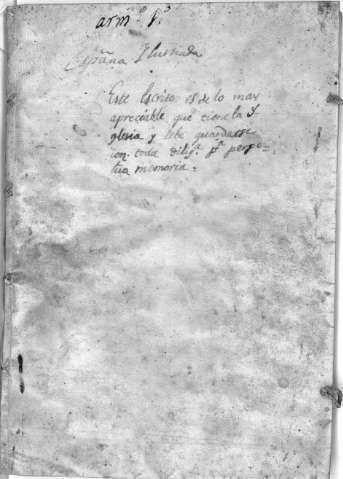 arm.º 1.º
España Ilustrada
Este Escrito es de lo mas
apreciable que tiene la Y
glesia y debe guardarse
con toda dilig.ª p.ª perpe-
tua memoria.